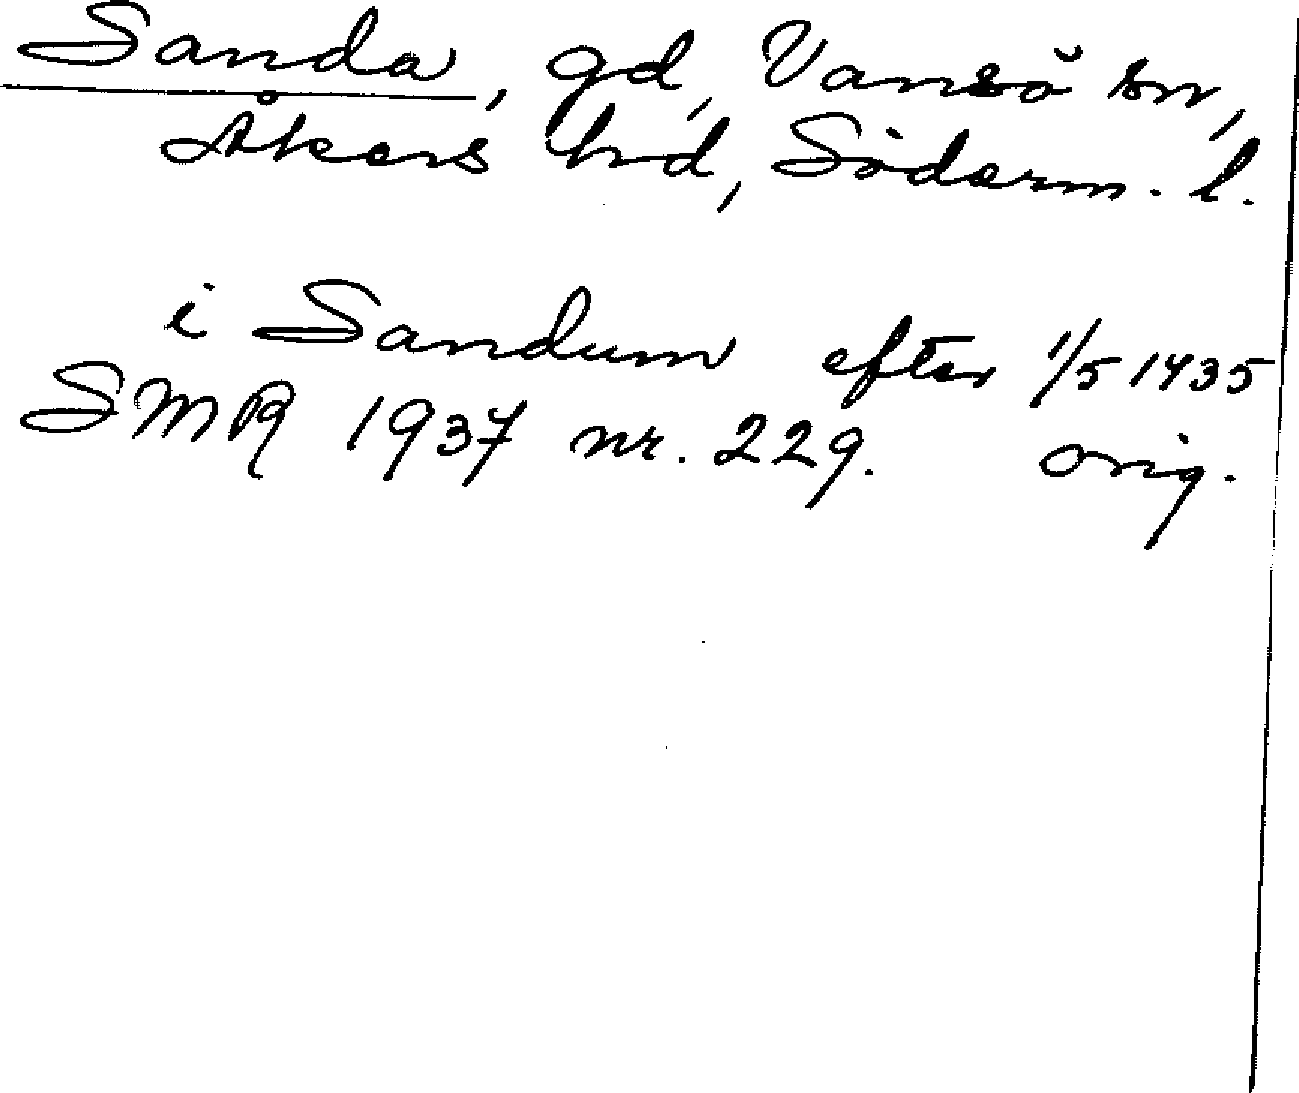 Sanda, gd, Vansö sn,
Åkers hd, Söderm. l.
i Sandum efter 1/5 1435
SMR 1937 nr. 229. orig.